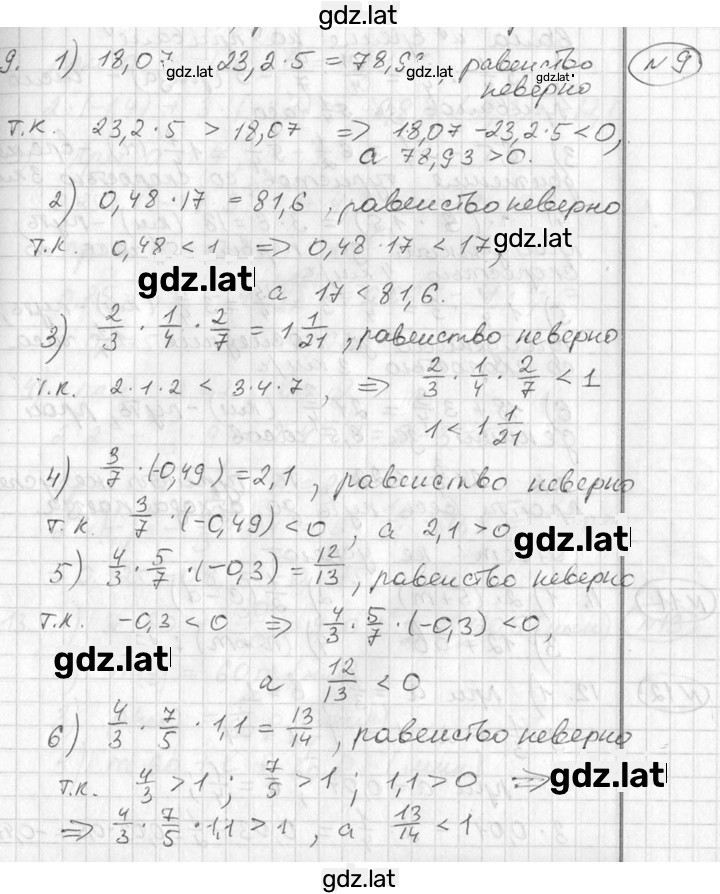 gdz.latl
9. 1) 18,07 gdz.latl 23,2 · 5 = 78,93, gdz.latl равенство gdz.latl №9
неверно
т.к. 23,2 · 5 > 18,07 ⇒ 18,07 - 23,2 · 5 < 0,
а 78,93 > 0.
2) 0,48 · 17 = 81,6, равенство неверно
т.к. 0,48 < 1 ⇒ 0,48 · 17 < 17, gdz.latl
gdz.latl а 17 < 81,6.
3) 2/3 · 1/4 · 2/7 = 1 1/21, равенство неверно
т.к. 2 · 1 · 2 < 3 · 4 · 7, ⇒ 2/3 · 1/4 · 2/7 < 1
1 < 1 1/21
4) 3/7 · (-0,49) = 2,1, равенство неверно
т.к. 3/7 · (-0,49) < 0, а 2,1 > 0 gdz.latl
5) 4/3 · 5/7 · (-0,3) = 12/13, равенство неверно
т.к. -0,3 < 0 ⇒ 4/3 · 5/7 · (-0,3) < 0,
gdz.latl
а 12/13 < 0
6) 4/3 · 7/5 · 1,1 = 13/14, равенство неверно
т.к. 4/3 > 1; 7/5 > 1; 1,1 > 0 ⇒ gdz.latl
⇒ 4/3 · 7/5 · 1,1 > 1, а 13/14 < 1
gdz.latl